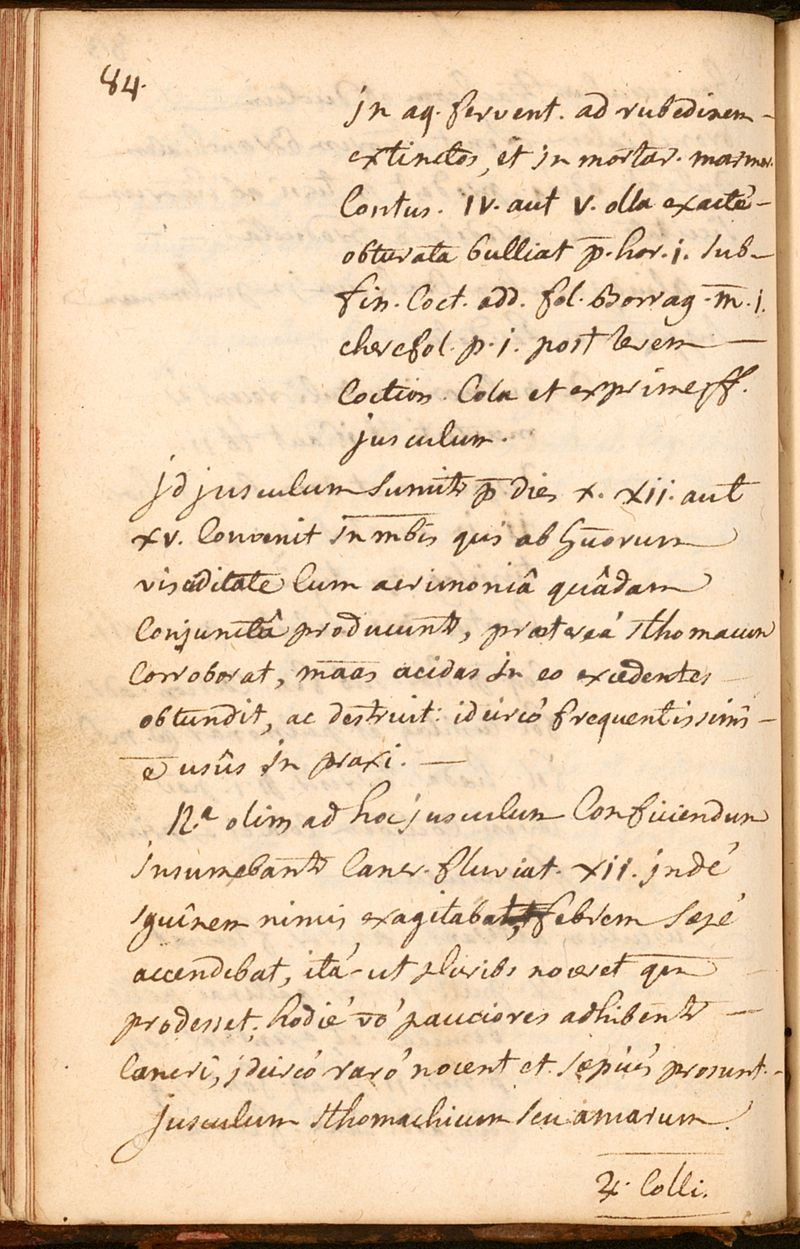 84.
in aq. fervent. ad rubedinem
extinctos, et in mortar. marmor.
Contus. IV. aut V. olla exactè
obturata bulliat p̄. hor. j. sub
fin. Coct. add. fol. Borrag. m̄. j.
cherefol. p. j. post levem
Coction. Cola et exprime ff.
jusculum.
jd jusculum sumitr p̄ dies x. XII. aut
XV. Convenit in mbis qui ab huorum
visciditate Cum acrimoniâ quâdam
Conjunctâ producuntr, prætereà sthomacum
Corroborat, māas acidas in eo excedentes
obtundit, ac destruit: idcircò frequentissimi
ē usûs in praxi.
Na olim ad hoc jusculum Conficiendum
insumebantr Cancr. fluviat. XII. indè
sguînem nimis exagitabat, febrem sæpè
accendebat, ità ut pluribs noceret qm
prodesset; hodiè vō pauciores adhibentr
Cancri, jdcircò rarò nocent et sæpiùs prosunt.
jusculum sthomachicum seu amarum.
♃. Colli.